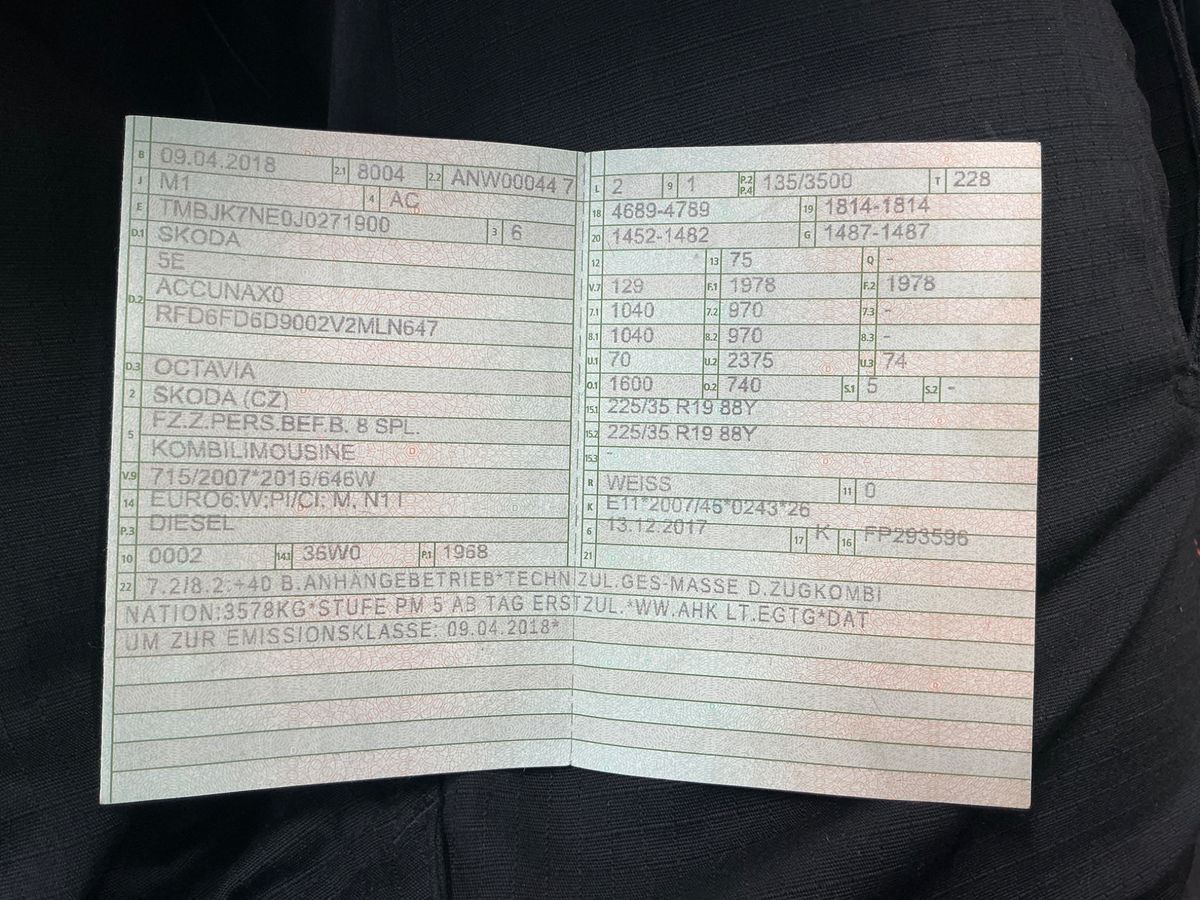 B 09.04.2018 2.1 8004 2.2 ANW00044 7
J M1 4 AC
E TMBJK7NE0J0271900 3 6
D.1 SKODA
5E
D.2 ACCUNAX0
RFD6FD6D9002V2MLN647
D.3 OCTAVIA
2 SKODA (CZ)
5 FZ.Z.PERS.BEF.B. 8 SPL.
KOMBILIMOUSINE
V.9 715/2007*2016/646W
14 EURO6;W;PI/CI; M, N1 I
P.3 DIESEL
10 0002 14.1 36W0 P.1 1968
L 2 9 1 P.2 P.4 135/3500 T 228
18 4689-4789 19 1814-1814
20 1452-1482 G 1487-1487
12 13 75 Q -
V.7 129 F.1 1978 F.2 1978
7.1 1040 7.2 970 7.3 -
8.1 1040 8.2 970 8.3 -
U.1 70 U.2 2375 U.3 74
O.1 1600 O.2 740 S.1 5 S.2 -
15.1 225/35 R19 88Y
15.2 225/35 R19 88Y
15.3 -
R WEISS 11 0
K E11*2007/46*0243*26
6 13.12.2017 17 K 16 FP293596
21
22 7.2/8.2:+40 B.ANHANGEBETRIEB*TECHN.ZUL.GES-MASSE D.ZUGKOMBI
NATION:3578KG*STUFE PM 5 AB TAG ERSTZUL.*WW.AHK LT.EGTG*DAT
UM ZUR EMISSIONSKLASSE: 09.04.2018*